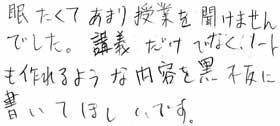 眠たくてあまり授業を聞けません
でした。講義だけでなく、ノート
も作れるような内容を黒板に
書いてほしいです。